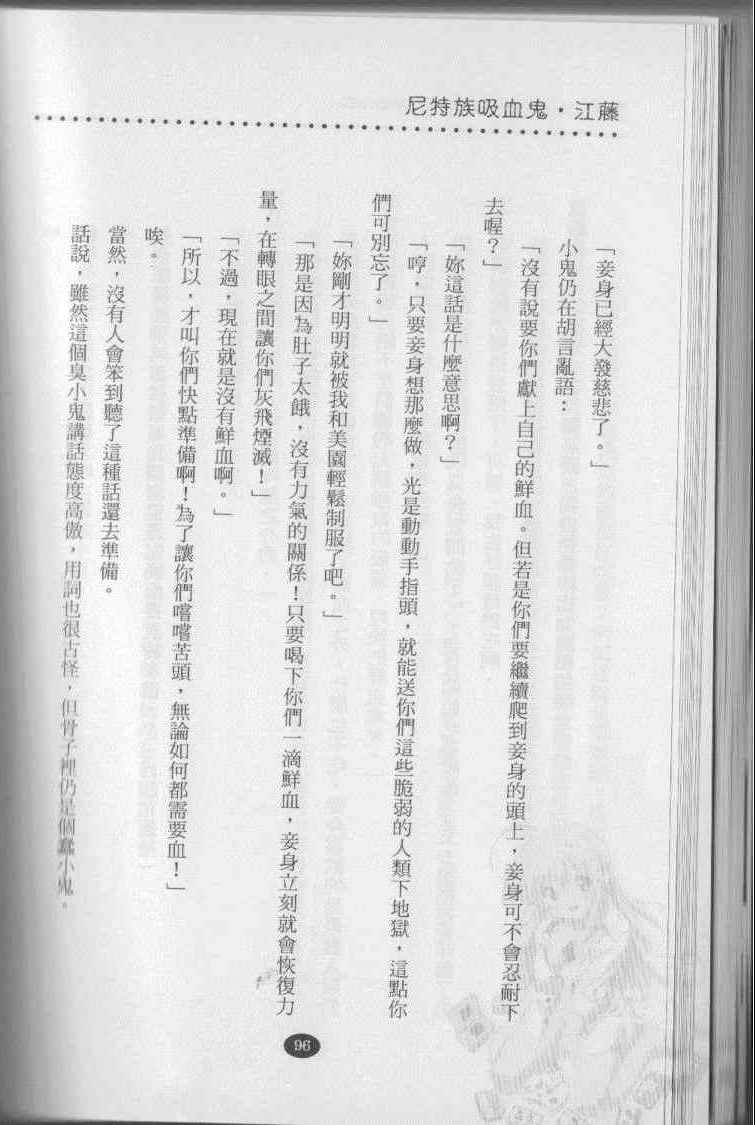 尼特族吸血鬼・江藤
「妾身已經大發慈悲了。」
小鬼仍在胡言亂語：
「沒有說要你們獻上自己的鮮血。但若是你們要繼續爬到妾身的頭上，妾身可不會忍耐下
去喔？」
「妳這話是什麼意思啊？」
「哼，只要妾身想那麼做，光是動動手指頭，就能送你們這些脆弱的人類下地獄，這點你
們可別忘了。」
「妳剛才明明就被我和美園輕鬆制服了吧。」
「那是因為肚子太餓，沒有力氣的關係！只要喝下你們一滴鮮血，妾身立刻就會恢復力
量，在轉眼之間讓你們灰飛煙滅！」
「不過，現在就是沒有鮮血啊。」
「所以，才叫你們快點準備啊！為了讓你們嚐嚐苦頭，無論如何都需要血！」
唉。
當然，沒有人會笨到聽了這種話還去準備。
話說，雖然這個臭小鬼講話態度高傲，用詞也很古怪，但骨子裡仍是個蠢小鬼。
96